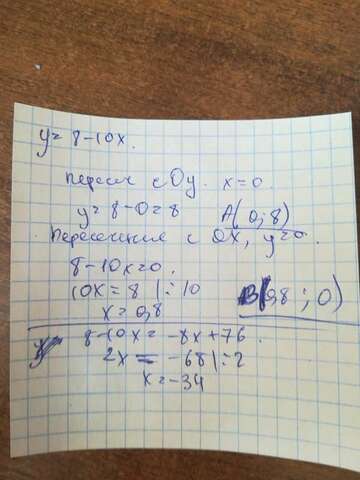 y = 8 - 10x.
Пересеч с Oy. x = 0.
y = 8 - 0 = 8 A(0; 8)
Пересечения с OX, y = 0.
8 - 10x = 0.
10x = 8 | : 10
x = 0,8 B(0,8; 0)
8 - 10x = -8x + 76.
2x = -68 | : 2
x = -34